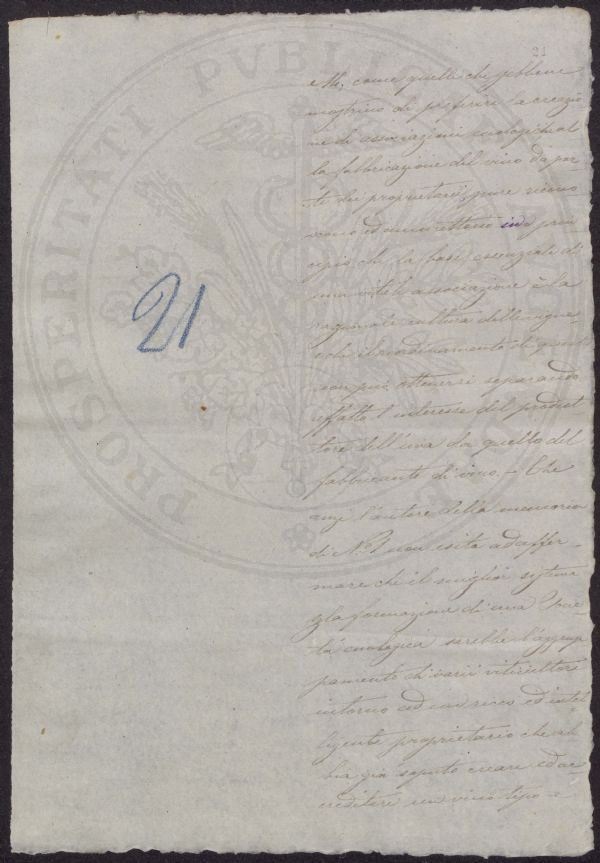 21
e M, come quelli che sebbene
mostrino di preferire la creazio
ne di associazioni enologiche al
la fabbricazione del vino da par-
te dei proprietarii, pure
ed ammettono in prin
cipio che la base essenziale di
una utile associazione è la
razionale cultura delle vigne
che il riordinamento di queste
non può ottenersi separando
affatto l'interesse del produt
tore dell'uva da quello del
fabbricante di vino. - Che
anzi l'autore della memoria
di N.º 1 non esita ad affer-
mare che il miglior sistema
la formazione di una Socie
tà enologica sarebbe l'aggrup
pamento di varii viticultori
intorno ad un ricco ed intel
ligente proprietario che ab
bia già saputo creare ed ac-
creditare un vino tipo - e
21
PROSPERITATI PVBLICAE